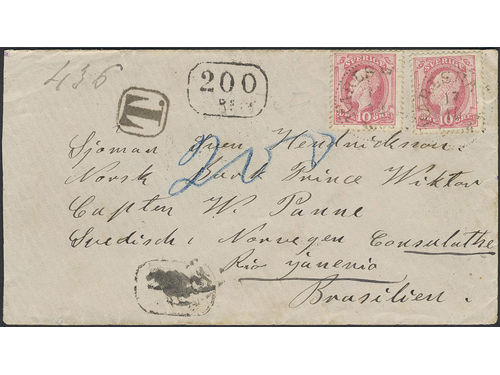 436
T.
200
REIS
SVERIGE SVERIGE
10 ÖRE 10 ÖRE
200
Sjöman Sven Hendrickson.
Norsk Bark Prince Wiktor
Capten W. Panne
Swedisch & Norwegen Consulathe
Rio Janerio
Brasilien.